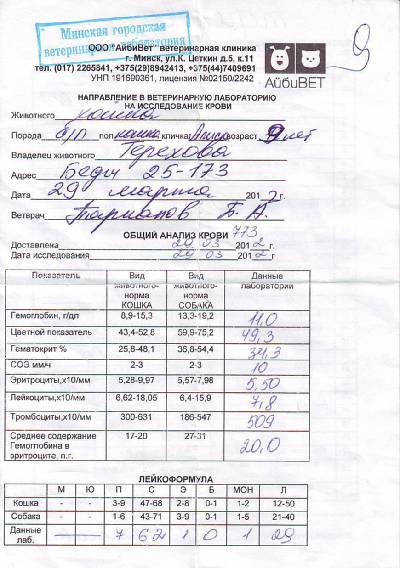 Минская городская
ветеринарная лаборатория
ООО "АйбиВет" ветеринарная клиника
г. Минск, ул.К. Цеткин д.5, к.11
тел. (017) 2265841, +375(29)8942413, +375(44)7409691
УНП 191690361, лицензия №02150/2242
АйбиВЕТ
9
НАПРАВЛЕНИЕ В ВЕТЕРИНАРНУЮ ЛАБОРАТОРИЮ
НА ИССЛЕДОВАНИЕ КРОВИ
Животного кошка
Порода б/п пол кошка кличка Алиса возраст 9 лет
Владелец животного Терехова
Адрес Беды 25-173
Дата 29 марта 2012г.
Ветврач
ОБЩИЙ АНАЛИЗ КРОВИ 773
Доставлена 29 03 2012г.
Дата исследования 29 03 2012г.
Показатель Вид животного-норма КОШКА Вид животного-норма СОБАКА Данные лаборатории
Гемоглобин, г/дл 8,9-15,3 13,3-19,2 11,0
Цветной показатель 43,4-52,8 59,9-75,2 49,3
Гематокрит % 25,8-48,1 36,8-54,4 34,3
СОЭ мм/ч 2-3 2-3 10
Эритроциты,х10/мм 5,28-9,97 5,57-7,98 5,50
Лейкоциты,х10/мм 6,62-18,05 6,4-15,9 7,8
Тромбоциты,х10/мм 300-631 186-547 509
Среднее содержание Гемоглобина в эритроците, п.г. 17-20 27-31 20,0
ЛЕЙКОФОРМУЛА
М Ю П С Э Б МОН Л
Кошка - - 3-9 47-68 2-8 0-1 1-2 12-50
Собака - - 1-6 43-71 3-9 0-1 1-5 21-40
Данные лаб. 7 62 1 0 1 29